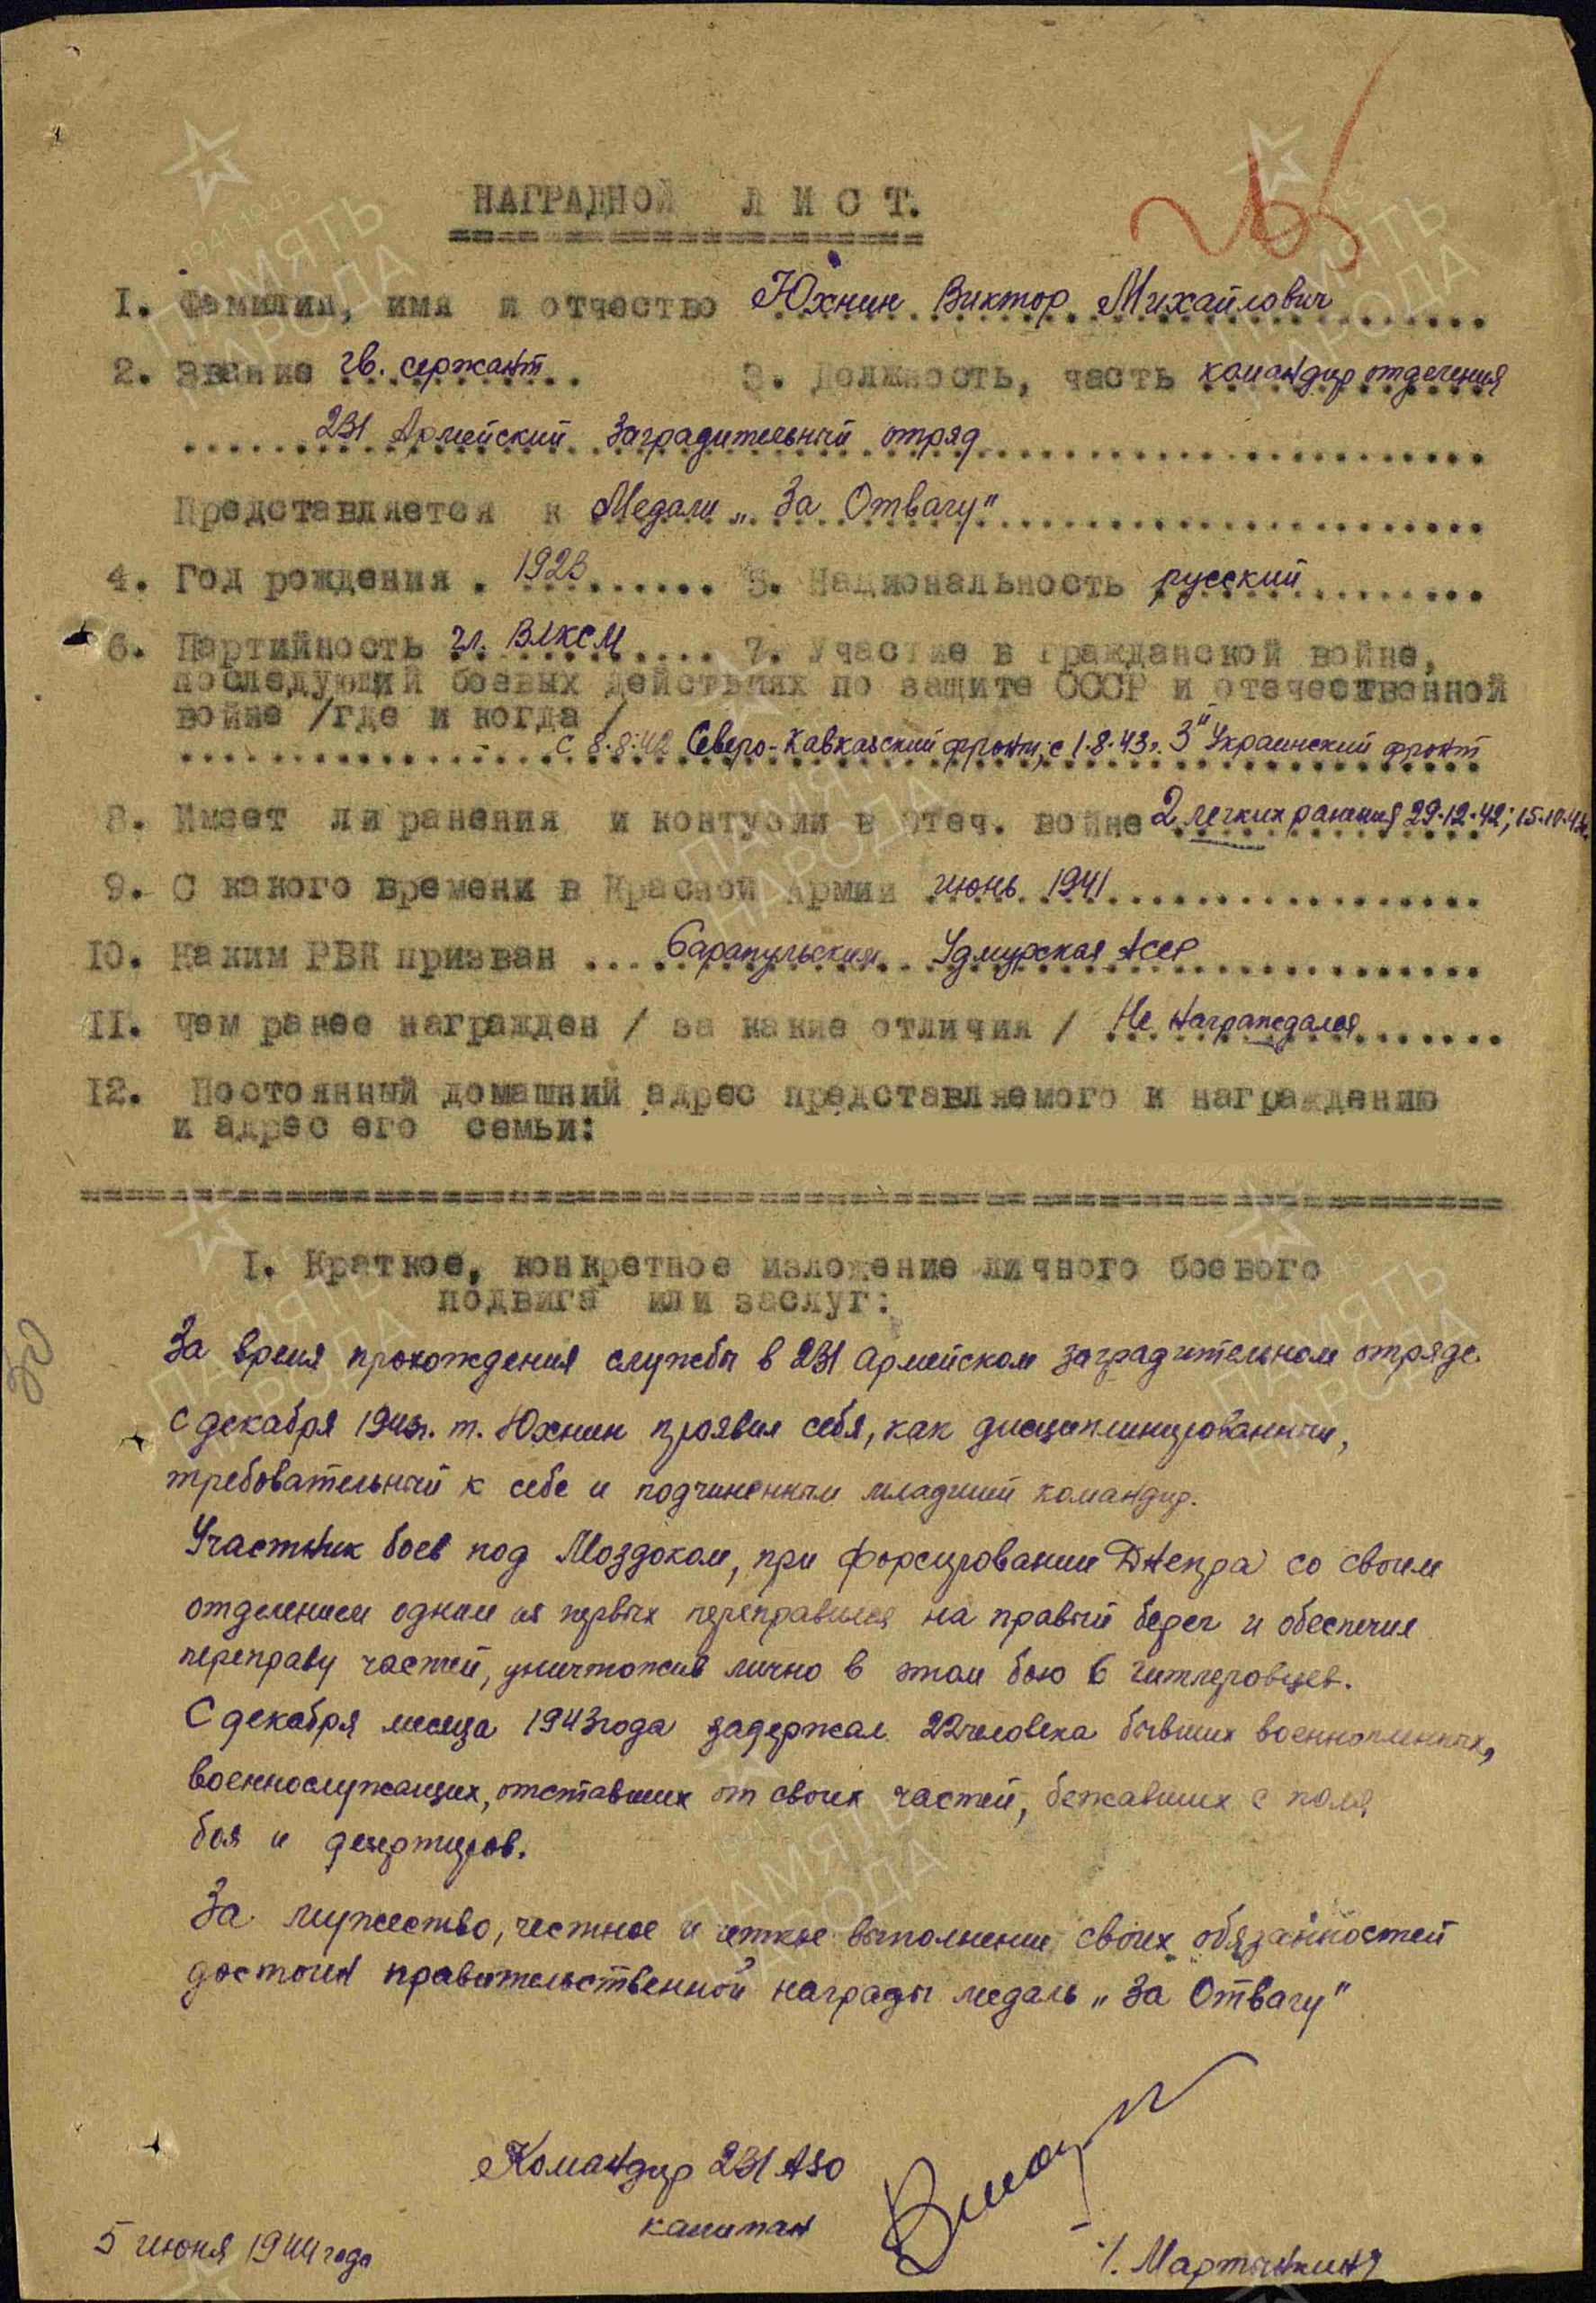 НАГРАДНОЙ ЛИСТ.
1. Фамилия, имя и отчество Юхнин Виктор Михайлович
2. Звание гв. сержант 3. Должность, часть командир отделения
231 Армейский Заградительный отряд
Представляется к Медали „За Отвагу"
4. Год рождения . 1923 5. Национальность русский
6. Партийность чл. ВЛКСМ 7. Участие в гражданской войне,
последующий боевых действиях по защите СССР и отечественной
войне /где и когда/
с 8.8.42 Северо-Кавказский фронт; с 1.8.43г. 3й Украинский фронт
8. Имеет ли ранения и контузии в отеч. войне 2 легких ранения 29.12.42; 15.10.43г.
9. С какого времени в Красной Армии июнь 1941
10. Каким РВК призван Сарапульским Удмурская АССР
11. Чем ранее награжден / за какие отличия / Не награждался
12. Постоянный домашний адрес представляемого к награждению
и адрес его семьи:
1. Краткое, конкретное изложение личного боевого
подвига или заслуг:
За время прохождения службы в 231 Армейском заградительном отряде
с декабря 1943г. т. Юхнин проявил себя, как дисциплинированный,
требовательный к себе и подчиненным младший командир.
Участник боев под Моздоком, при форсировании Днепра со своим
отделением одним из первых переправился на правый берег и обеспечил
переправу частей, уничтожив лично в этом бою 6 гитлеровцев.
С декабря месяца 1943 года задержал 22 человека бывших военнопленных,
военнослужащих, отставших от своих частей, бежавших с поля
боя и дезертиров.
За мужество, честное и четкое выполнение своих обязанностей
достоин правительственной награды медаль „За Отвагу"
Командир 231 АЗО
капитан
5 июня 1944 года
/. Мартынкин/
30
ПАМЯТЬ НАРОДА
1941-1945